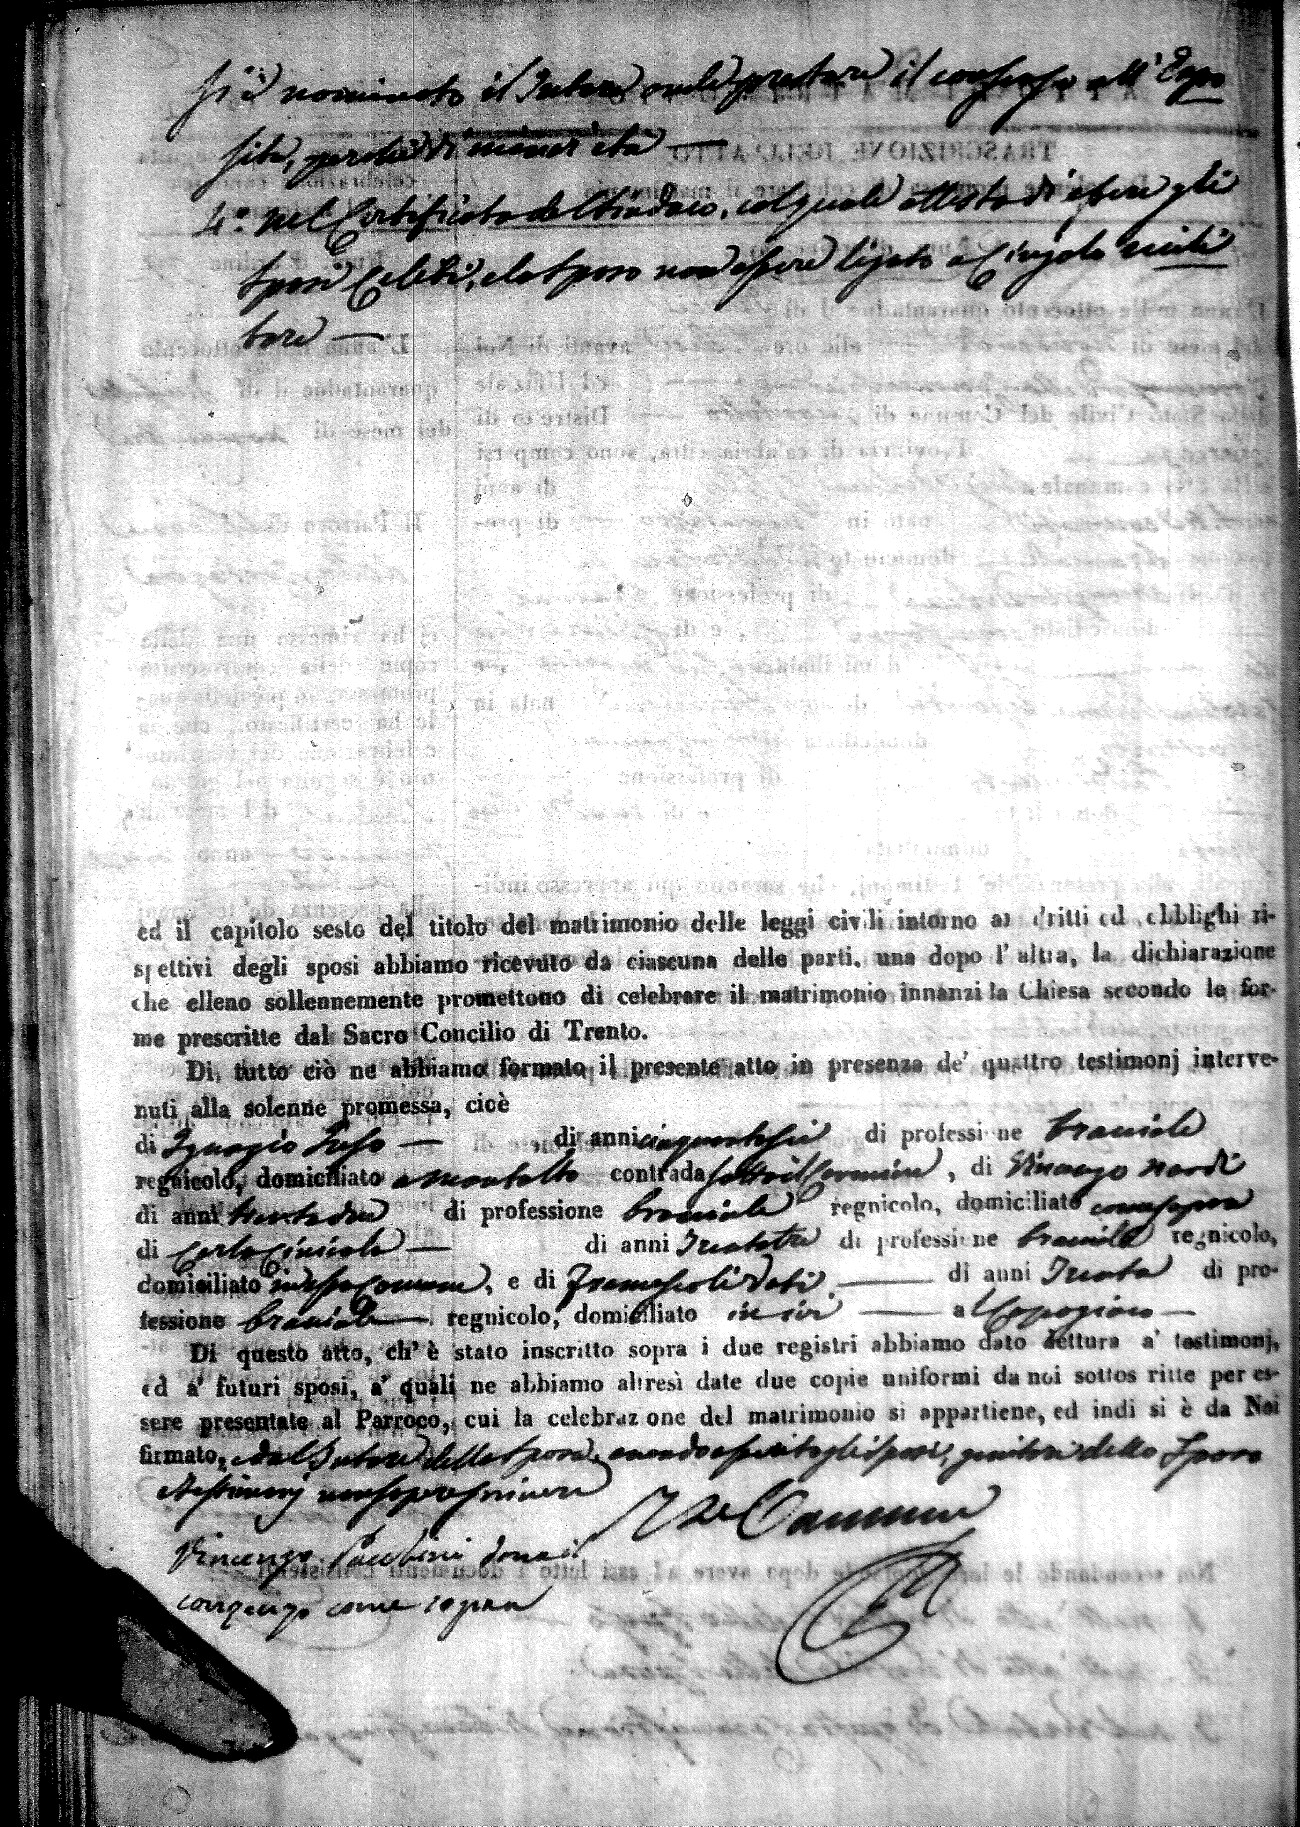 si è nominato il Tutore onde prestare il consenso all'Espo
sita, perchè di minor età —
4.° Nel Certificato del Sindaco, col quale attesta di essere gli
sposi Celibi, e lo sposo non essere ligato a Cingolo mili
tare —
ed il capitolo sesto del titolo del matrimonio delle leggi civili intorno ai dritti ed obblighi ri-
spettivi degli sposi abbiamo ricevuto da ciascuna delle parti, una dopo l'altra, la dichiarazione
che elleno sollennemente promettono di celebrare il matrimonio innanzi la Chiesa secondo le for-
me prescritte dal Sacro Concilio di Trento.
Di tutto ciò ne abbiamo formato il presente atto in presenza de' quattro testimonj interve-
nuti alla solenne promessa, cioè
di Ignazio — di anni cinquantasei di professione bracciale
regnicolo, domiciliato a Montalto contrada sotto il , di Vincenzo Nardi
di anni di professione bracciale regnicolo, domiciliato come sopra
di Carlo — di anni Trentatre di professione bracciale regnicolo,
domiciliato in essa Comune, e di Francesco — di anni Trenta di pro-
fessione bracciale regnicolo, domiciliato in ivi — a —
Di questo atto, ch'è stato inscritto sopra i due registri abbiamo dato lettura a' testimonj,
ed a' futuri sposi, a' quali ne abbiamo altresì date due copie uniformi da noi sottoscritte per es-
sere presentate al Parroco, cui la celebrazione del matrimonio si appartiene, ed indi si è da Noi
firmato, e dal Tutore della sposa, avendo asserito gli sposi, genitori dello Sposo
e testimonj non saper scrivere
Vincenzo
come sopra